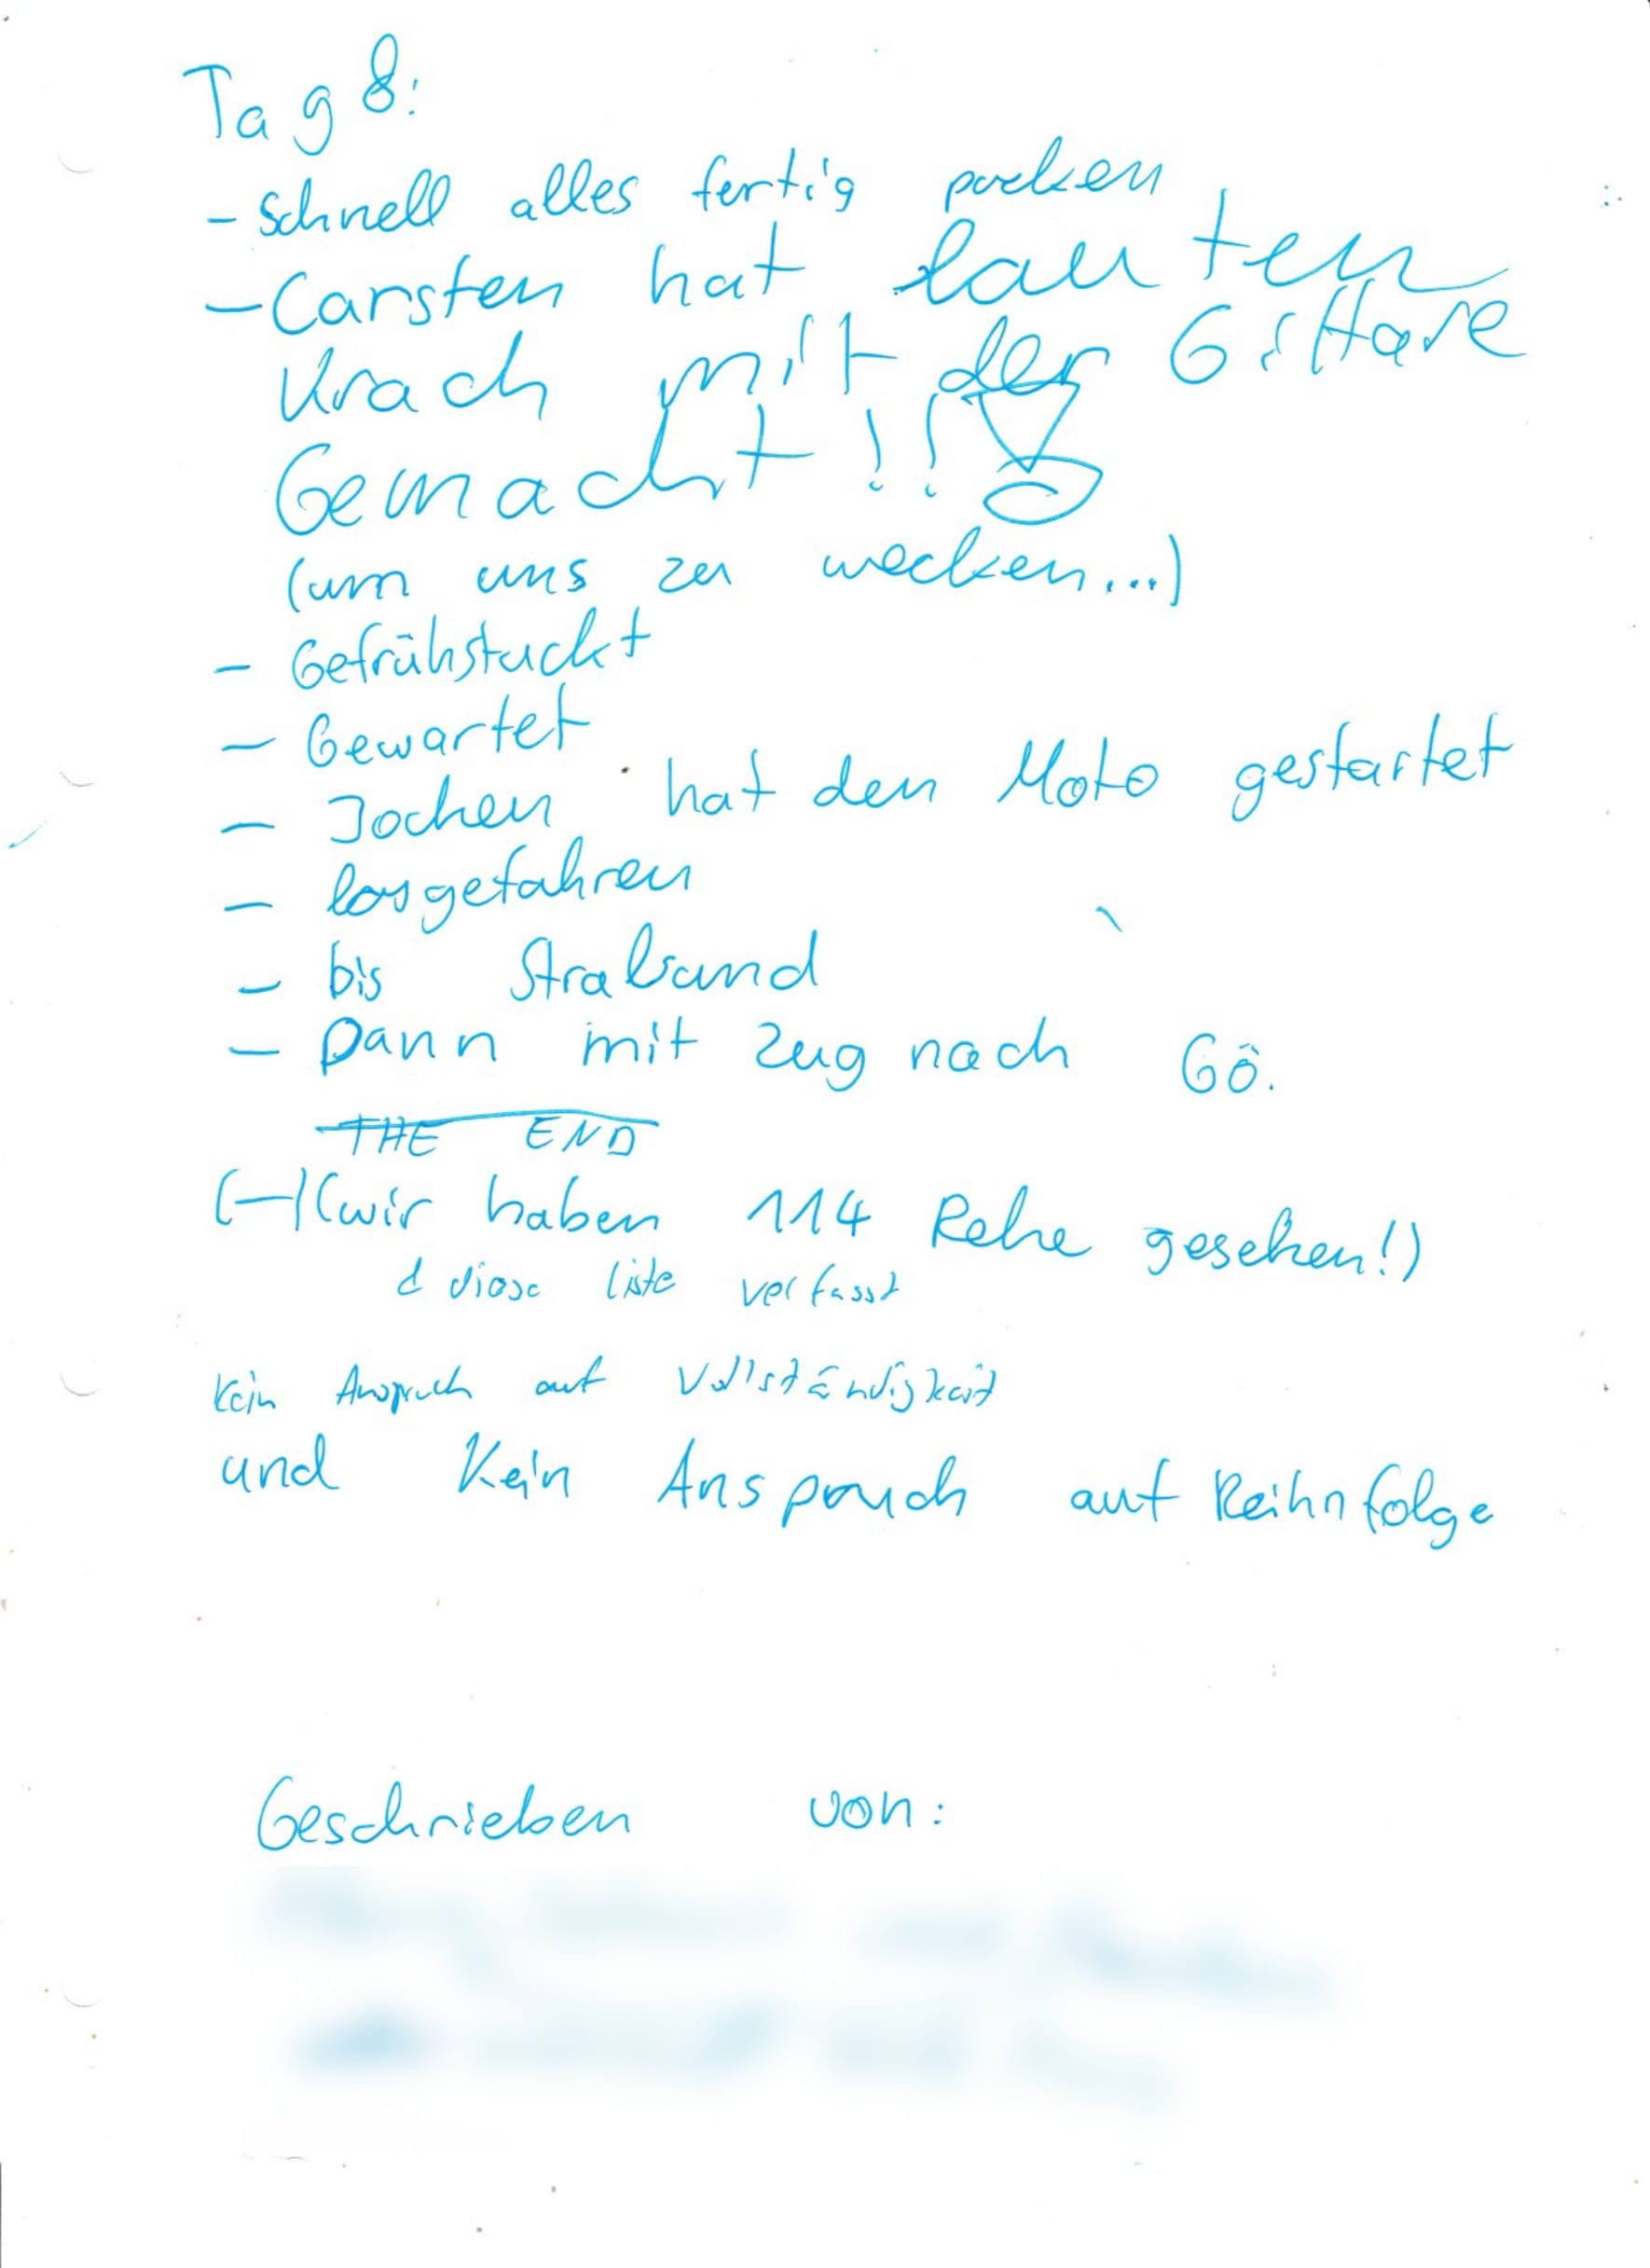 Tag 8:
- schnell alles fertig packen
- Carsten hat lauten
Krach mit der Gittare
Gemacht!!!
(um uns zu wecken...)
- Gefrühstuckt
- Gewartet
- Jochen hat den Moto gestartet
- losgefahren
- bis Stralsund
- Dann mit Zug nach Gö.
THE END
(-) (wir haben 114 Rehe gesehen!)
& diese liste verfasst
Kein Anspruch auf Vollständigkeit
und Kein Anspruch auf Reihnfolge
Geschrieben von: